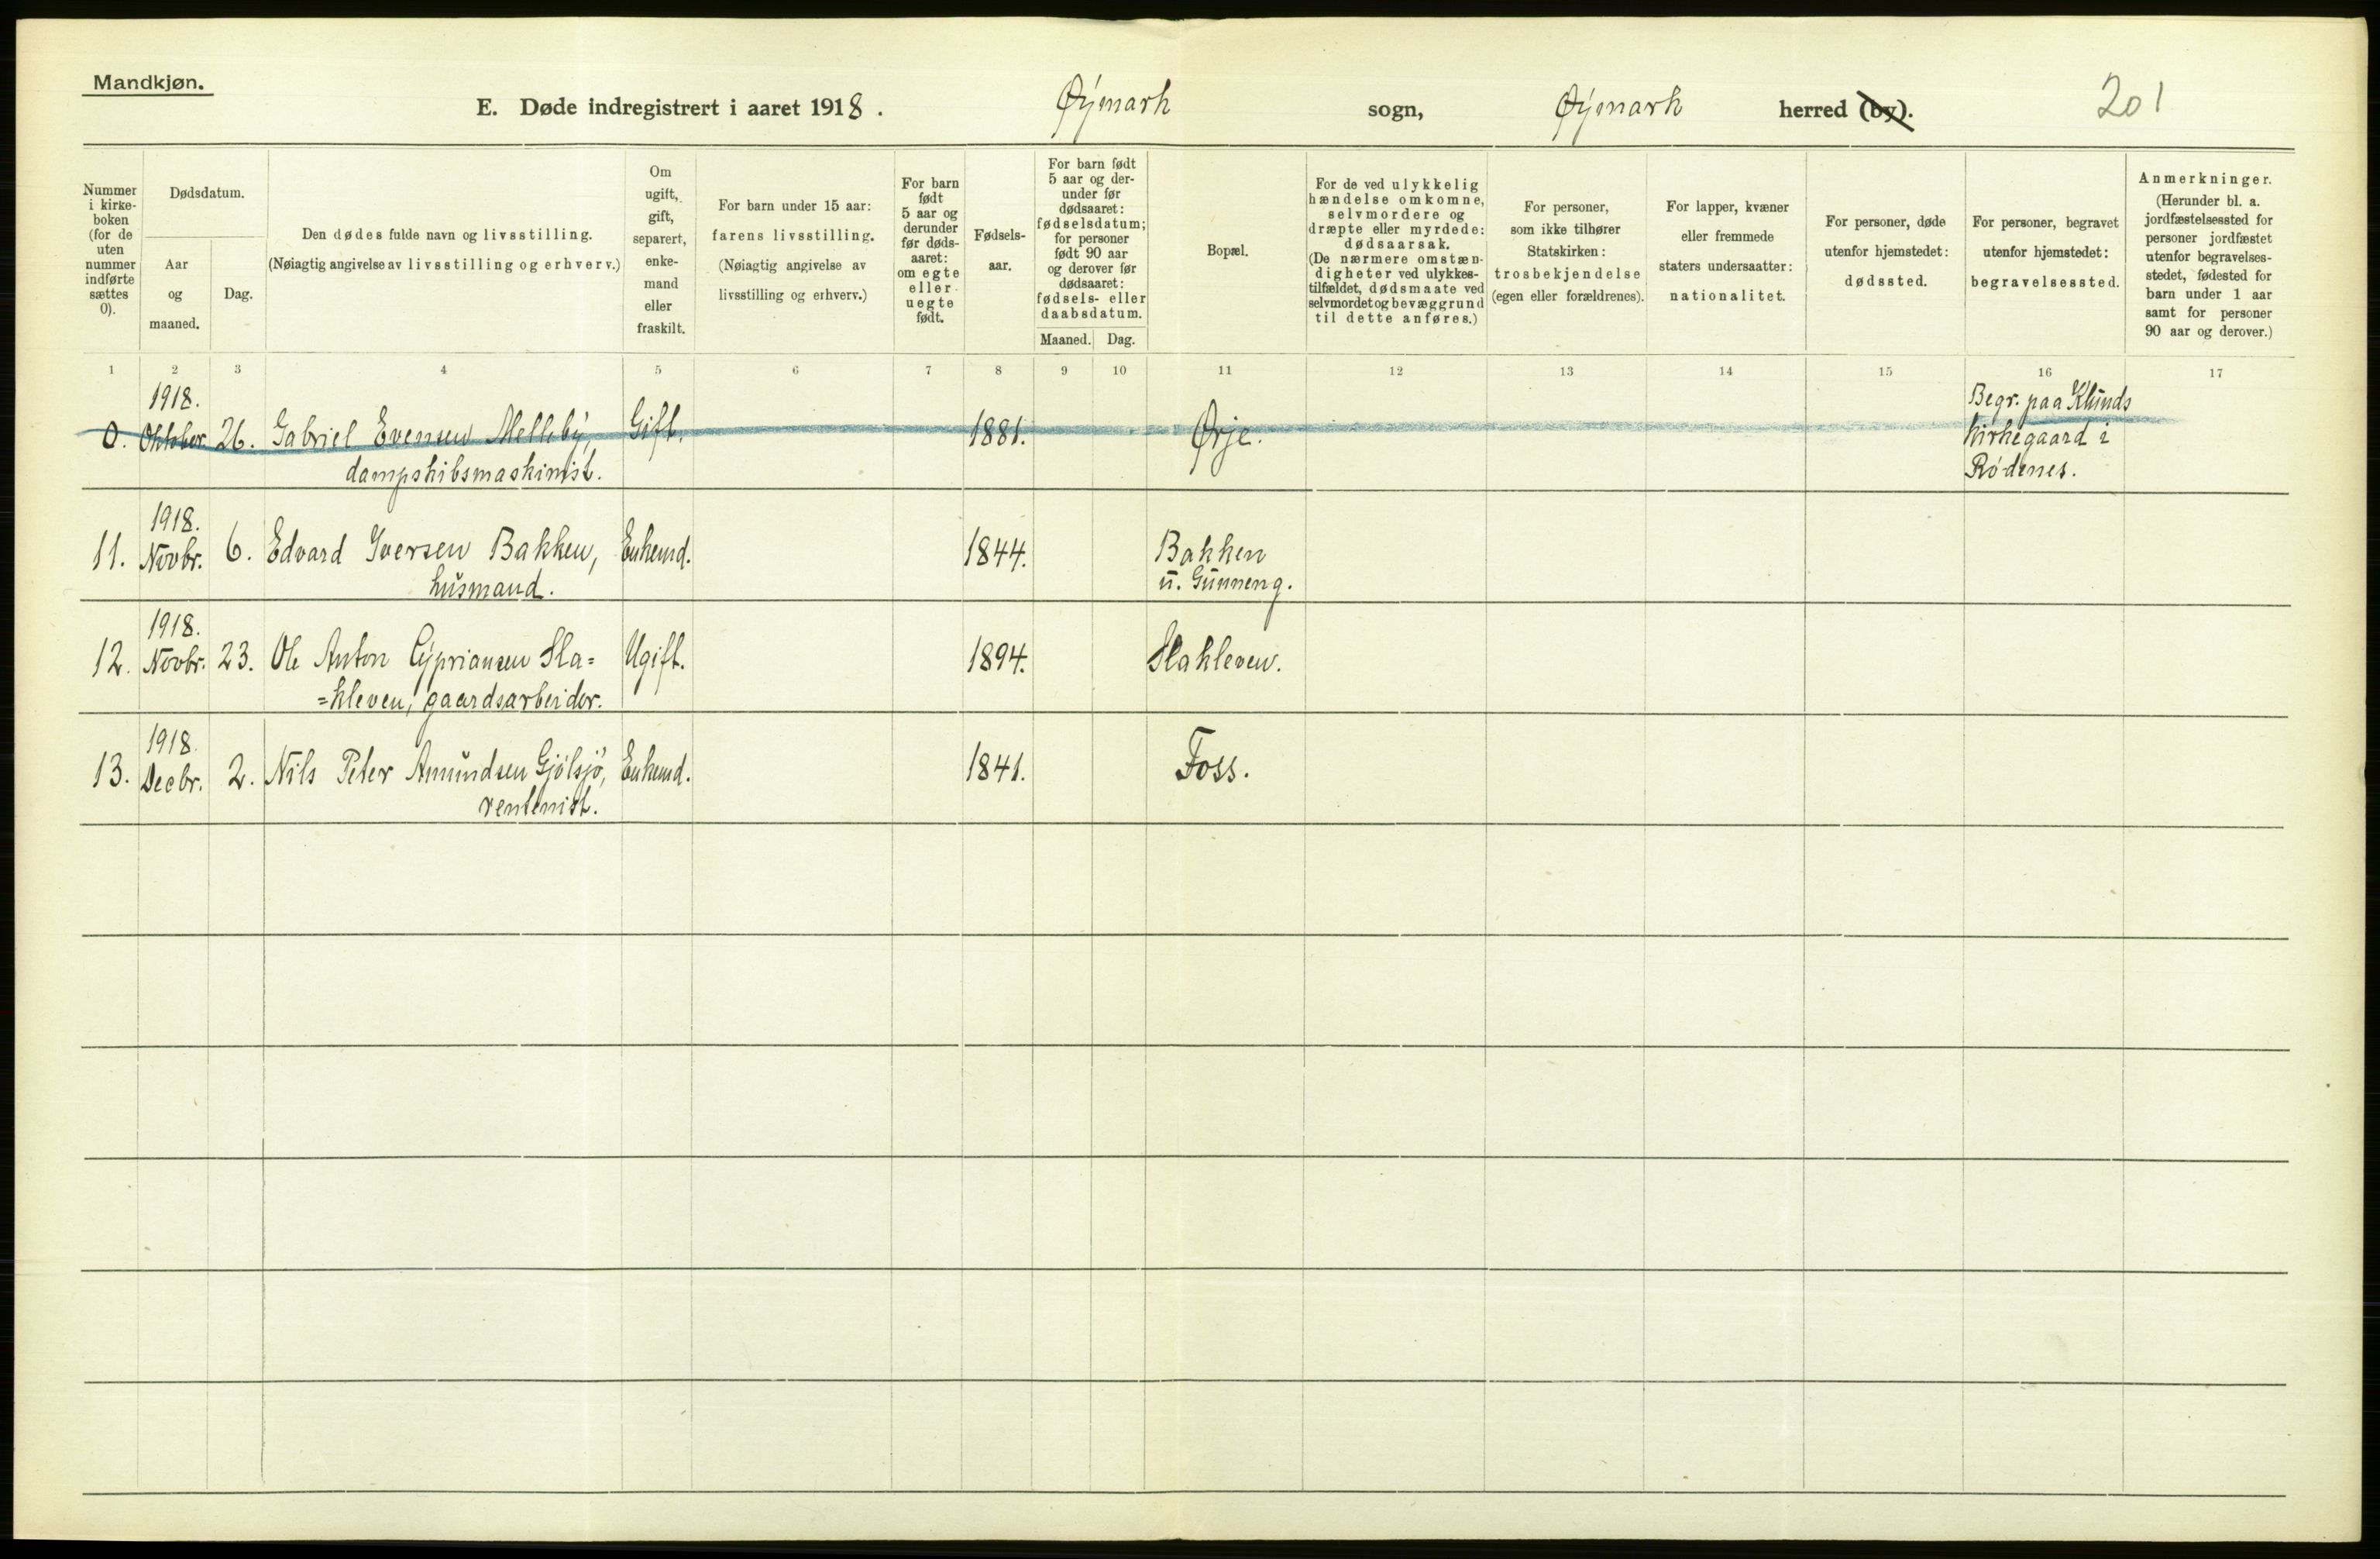 Mandkjøn.
E. Døde indregistrert i aaret 1918. Øymark sogn, Øymark herred (by). 201
Nummer i kirke-boken (for de uten nummer indførte sættes 0).
Dødsdatum.
Aar og maaned.
Dag.
Den dødes fulde navn og livsstilling.
(Nøiagtig angivelse av livsstilling og erhverv.)
Om ugift, gift, separert, enke-mand eller fraskilt.
For barn under 15 aar: farens livsstilling. (Nøiagtig angivelse av livsstilling og erhverv.)
For barn født 5 aar og derunder før døds-aaret: om egte eller uegte født.
Fødsels-aar.
For barn født 5 aar og der-under før dødsaaret: fødselsdatum; for personer født 90 aar og derover før dødsaaret: fødsels- eller daabsdatum.
Maaned. Dag.
Bopæl.
For de ved ulykkelig hændelse omkomne, selvmordere og dræpte eller myrdede: dødsaarsak. (De nærmere omstæn-digheter ved ulykkes-tilfældet, dødsmaate ved selvmordet og bevæggrund til dette anføres.)
For personer, som ikke tilhører Statskirken: trosbekjendelse (egen eller forældrenes).
For lapper, kvæner eller fremmede staters undersaatter: nationalitet.
For personer, døde utenfor hjemstedet: dødssted.
For personer, begravet utenfor hjemstedet: begravelsessted.
Anmerkninger. (Herunder bl. a. jordfæstelsessted for personer jordfæstet utenfor begravelses-stedet, fødested for barn under 1 aar samt for personer 90 aar og derover.)
1 2 3 4 5 6 7 8 9 10 11 12 13 14 15 16 17
1918. Begr. paa Klunds
0. Oktober 26. Gabriel Evensen Melleby, Gift. 1881. Ørje. kirkegaard i
dampskibsmaskinist. Rødenes.
1918.
11. Novbr. 6. Edvard Iversen Bakken, Enkemd. 1844. Bakken
husmand. u. Gunneng.
1918.
12. Novbr. 23. Ole Anton Cypriansen Sla= Ugift. 1894. Slakleven.
=kleven, gaardsarbeider.
1918.
13. Decbr. 2. Nils Peter Amundsen Gjølsjø, Enkemd. 1841. Foss.
rentenist.